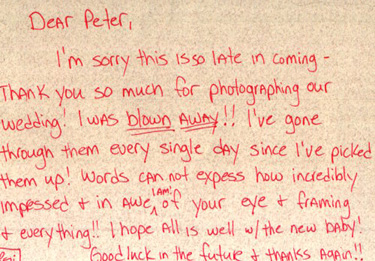 Dear Peter,
I'm sorry this is so late in coming -
Thank you so much for photographing our
wedding! I was blown away!! I've gone
through them every single day since I've picked
them up! Words can not expess how incredibly
impressed + in awe I am of your eye + framing
+ everything!! I hope all is well w/ the new baby!
Good luck in the future + thanks again!!